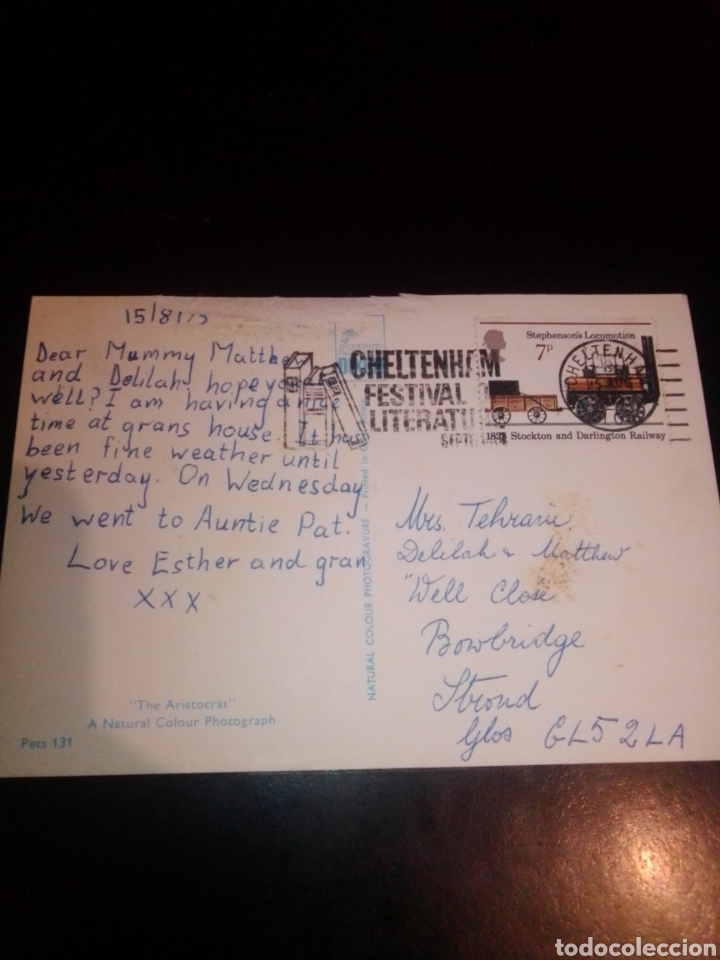 15/8/75
Dear Mummy Matthew
and Delilah hope you
well? I am having a nice
time at grans house. It has
been fine weather until
yesterday. On Wednesday
We went to Auntie Pat.
Love Esther and gran
XXX
"The Aristocrat"
A Natural Colour Photograph
Pets 131
NATURAL COLOUR PHOTOGRAVURE — Printed in
CHELTENHAM
FESTIVAL OF
LITERATURE
Stephenson's Locomotion
7P
CHELTENHAM
15 AUG
1825 Stockton and Darlington Railway
Mrs. Tehrani,
Delilah & Matthew
"Well Close
Bowbridge
Stroud
Glos GL5 2LA
todocoleccion